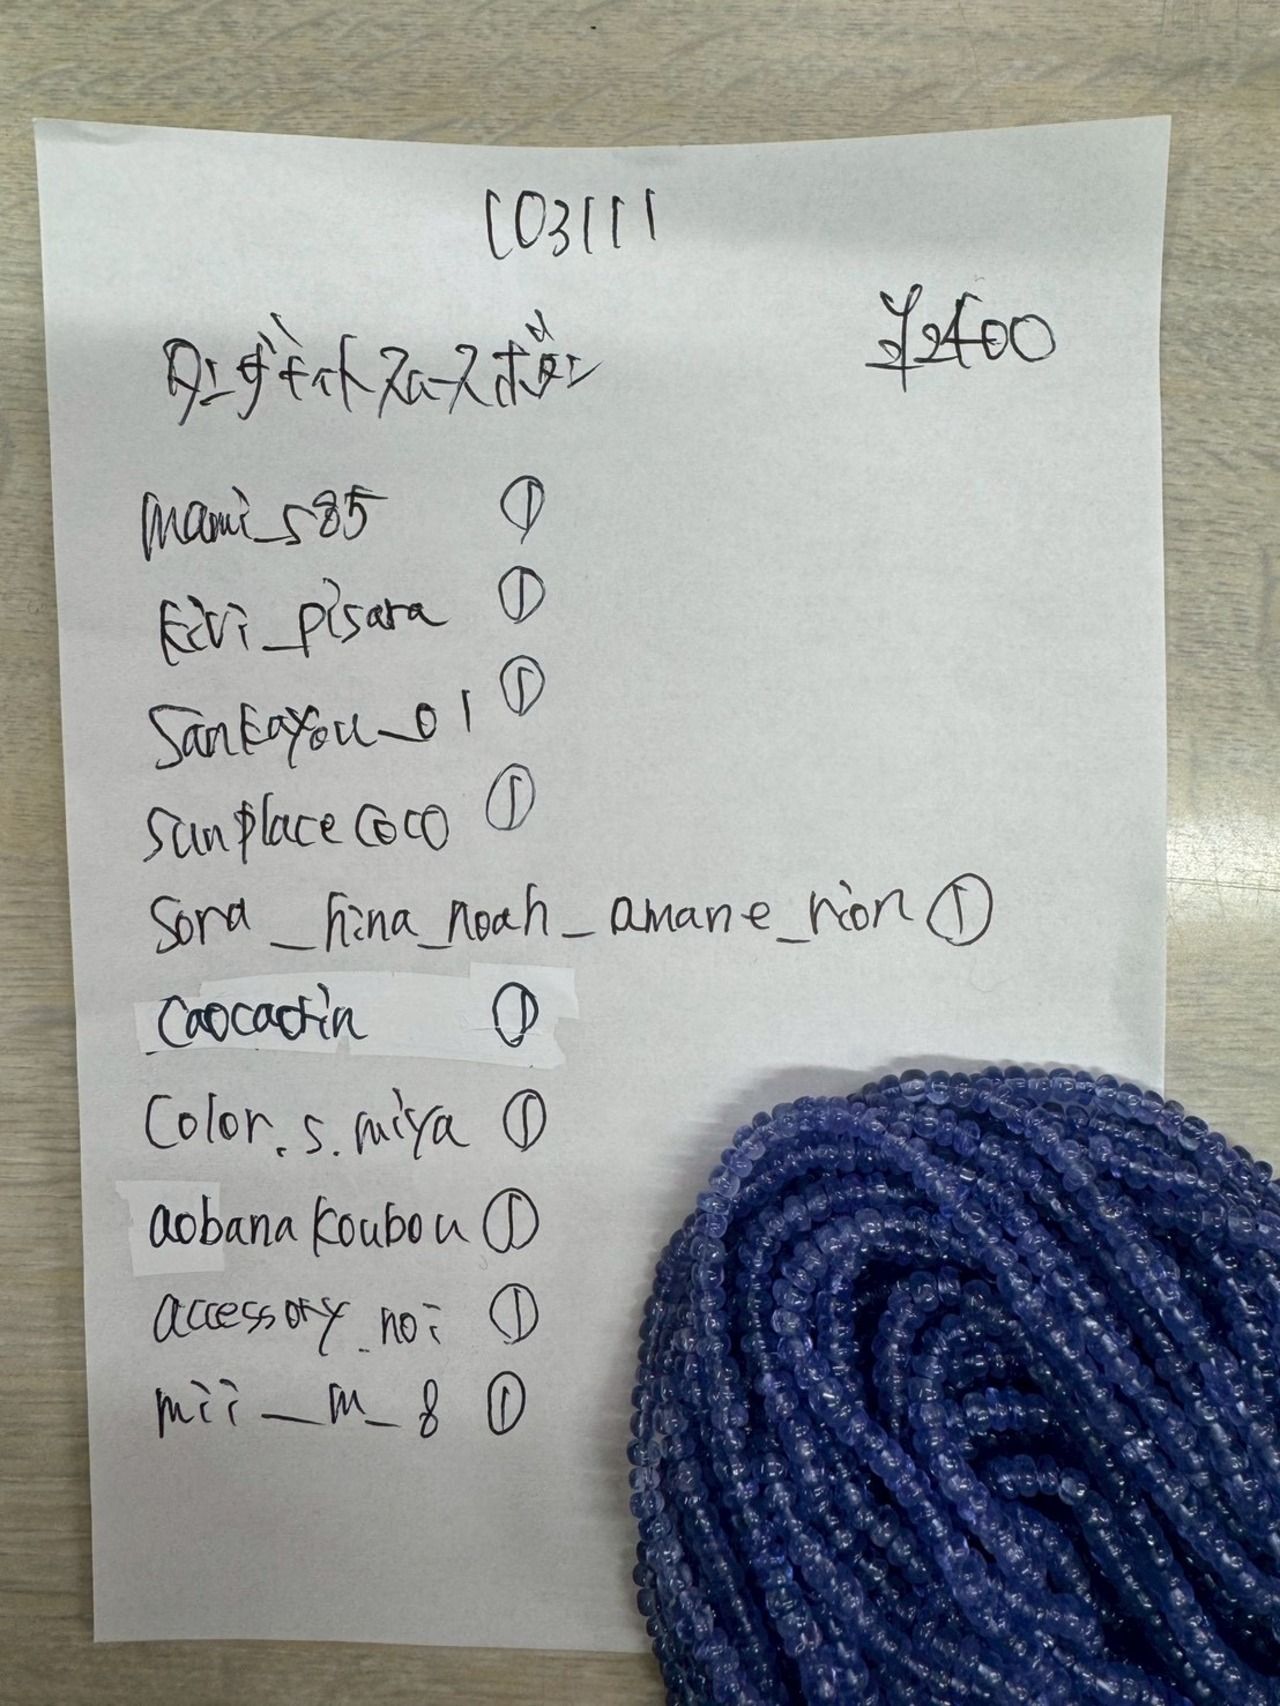 103111
¥2400
タンザナイトスムースボタン
mami_s85 ①
kivi_pisara ①
Sankayou_01 ①
sunplacecoco ①
Sora_hina_noah_amane_rion ①
caocaotin ①
Color.s.miya ①
aobanakoubou ①
accessory_noi ①
mii_m_8 ①